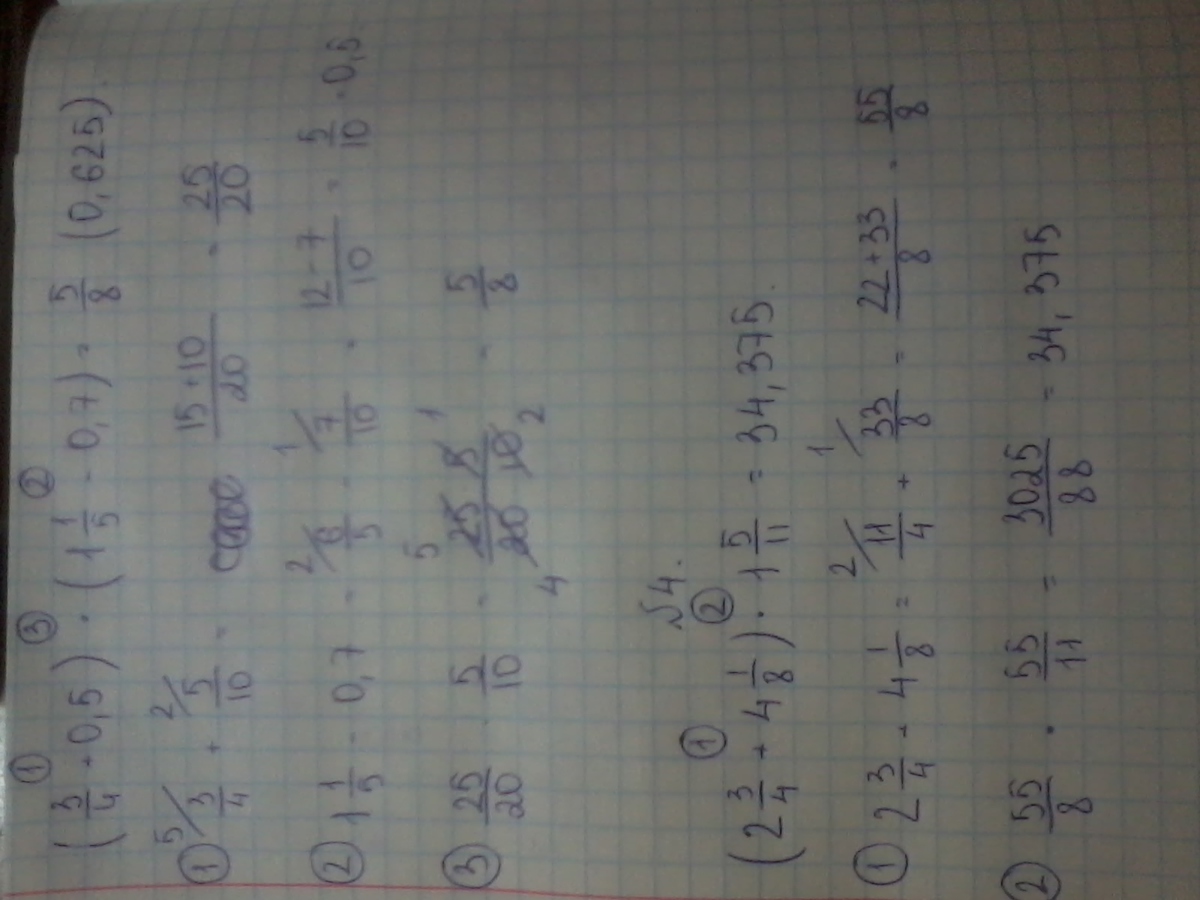 ① ③ ②
(3/4 + 0,5) · (1 1/5 - 0,7) = 5/8 (0,625).
① 5/ 3/4 + 2/ 5/10 = (15+10)/20 = 25/20
② 1 1/5 - 0,7 = 2/ 6/5 - 1/ 7/10 = (12-7)/10 = 5/10 = 0,5
③ 25/20 · 5/10 = 5 1 25 5/20 10 4 2 = 5/8
№4.
① ②
(2 3/4 + 4 1/8) · 1 5/11 = 34,375.
① 2 3/4 + 4 1/8 = 2/ 11/4 + 1/ 33/8 = (22+33)/8 = 55/8
② 55/8 · 55/11 = 3025/88 = 34,375